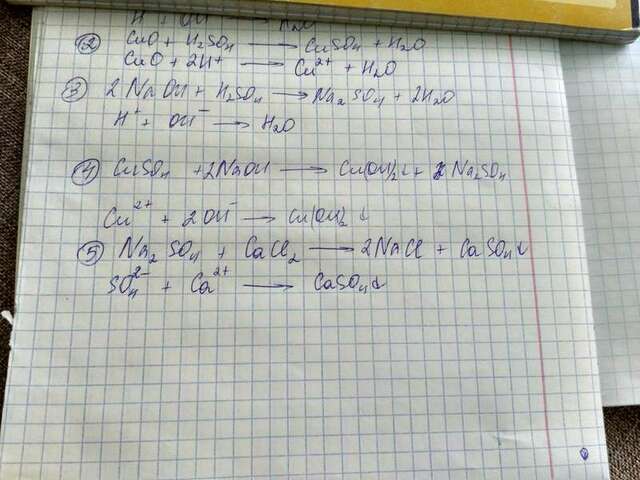 H⁺ + OH⁻ ⟶ H₂O
② CuO + H₂SO₄ ⟶ CuSO₄ + H₂O
CuO + 2H⁺ ⟶ Cu²⁺ + H₂O
③ 2NaOH + H₂SO₄ ⟶ Na₂SO₄ + 2H₂O
H⁺ + OH⁻ ⟶ H₂O
④ CuSO₄ + 2NaOH ⟶ Cu(OH)₂↓ + Na₂SO₄
Cu²⁺ + 2OH⁻ ⟶ Cu(OH)₂↓
⑤ Na₂SO₄ + CaCl₂ ⟶ 2NaCl + CaSO₄↓
SO₄²⁻ + Ca²⁺ ⟶ CaSO₄↓